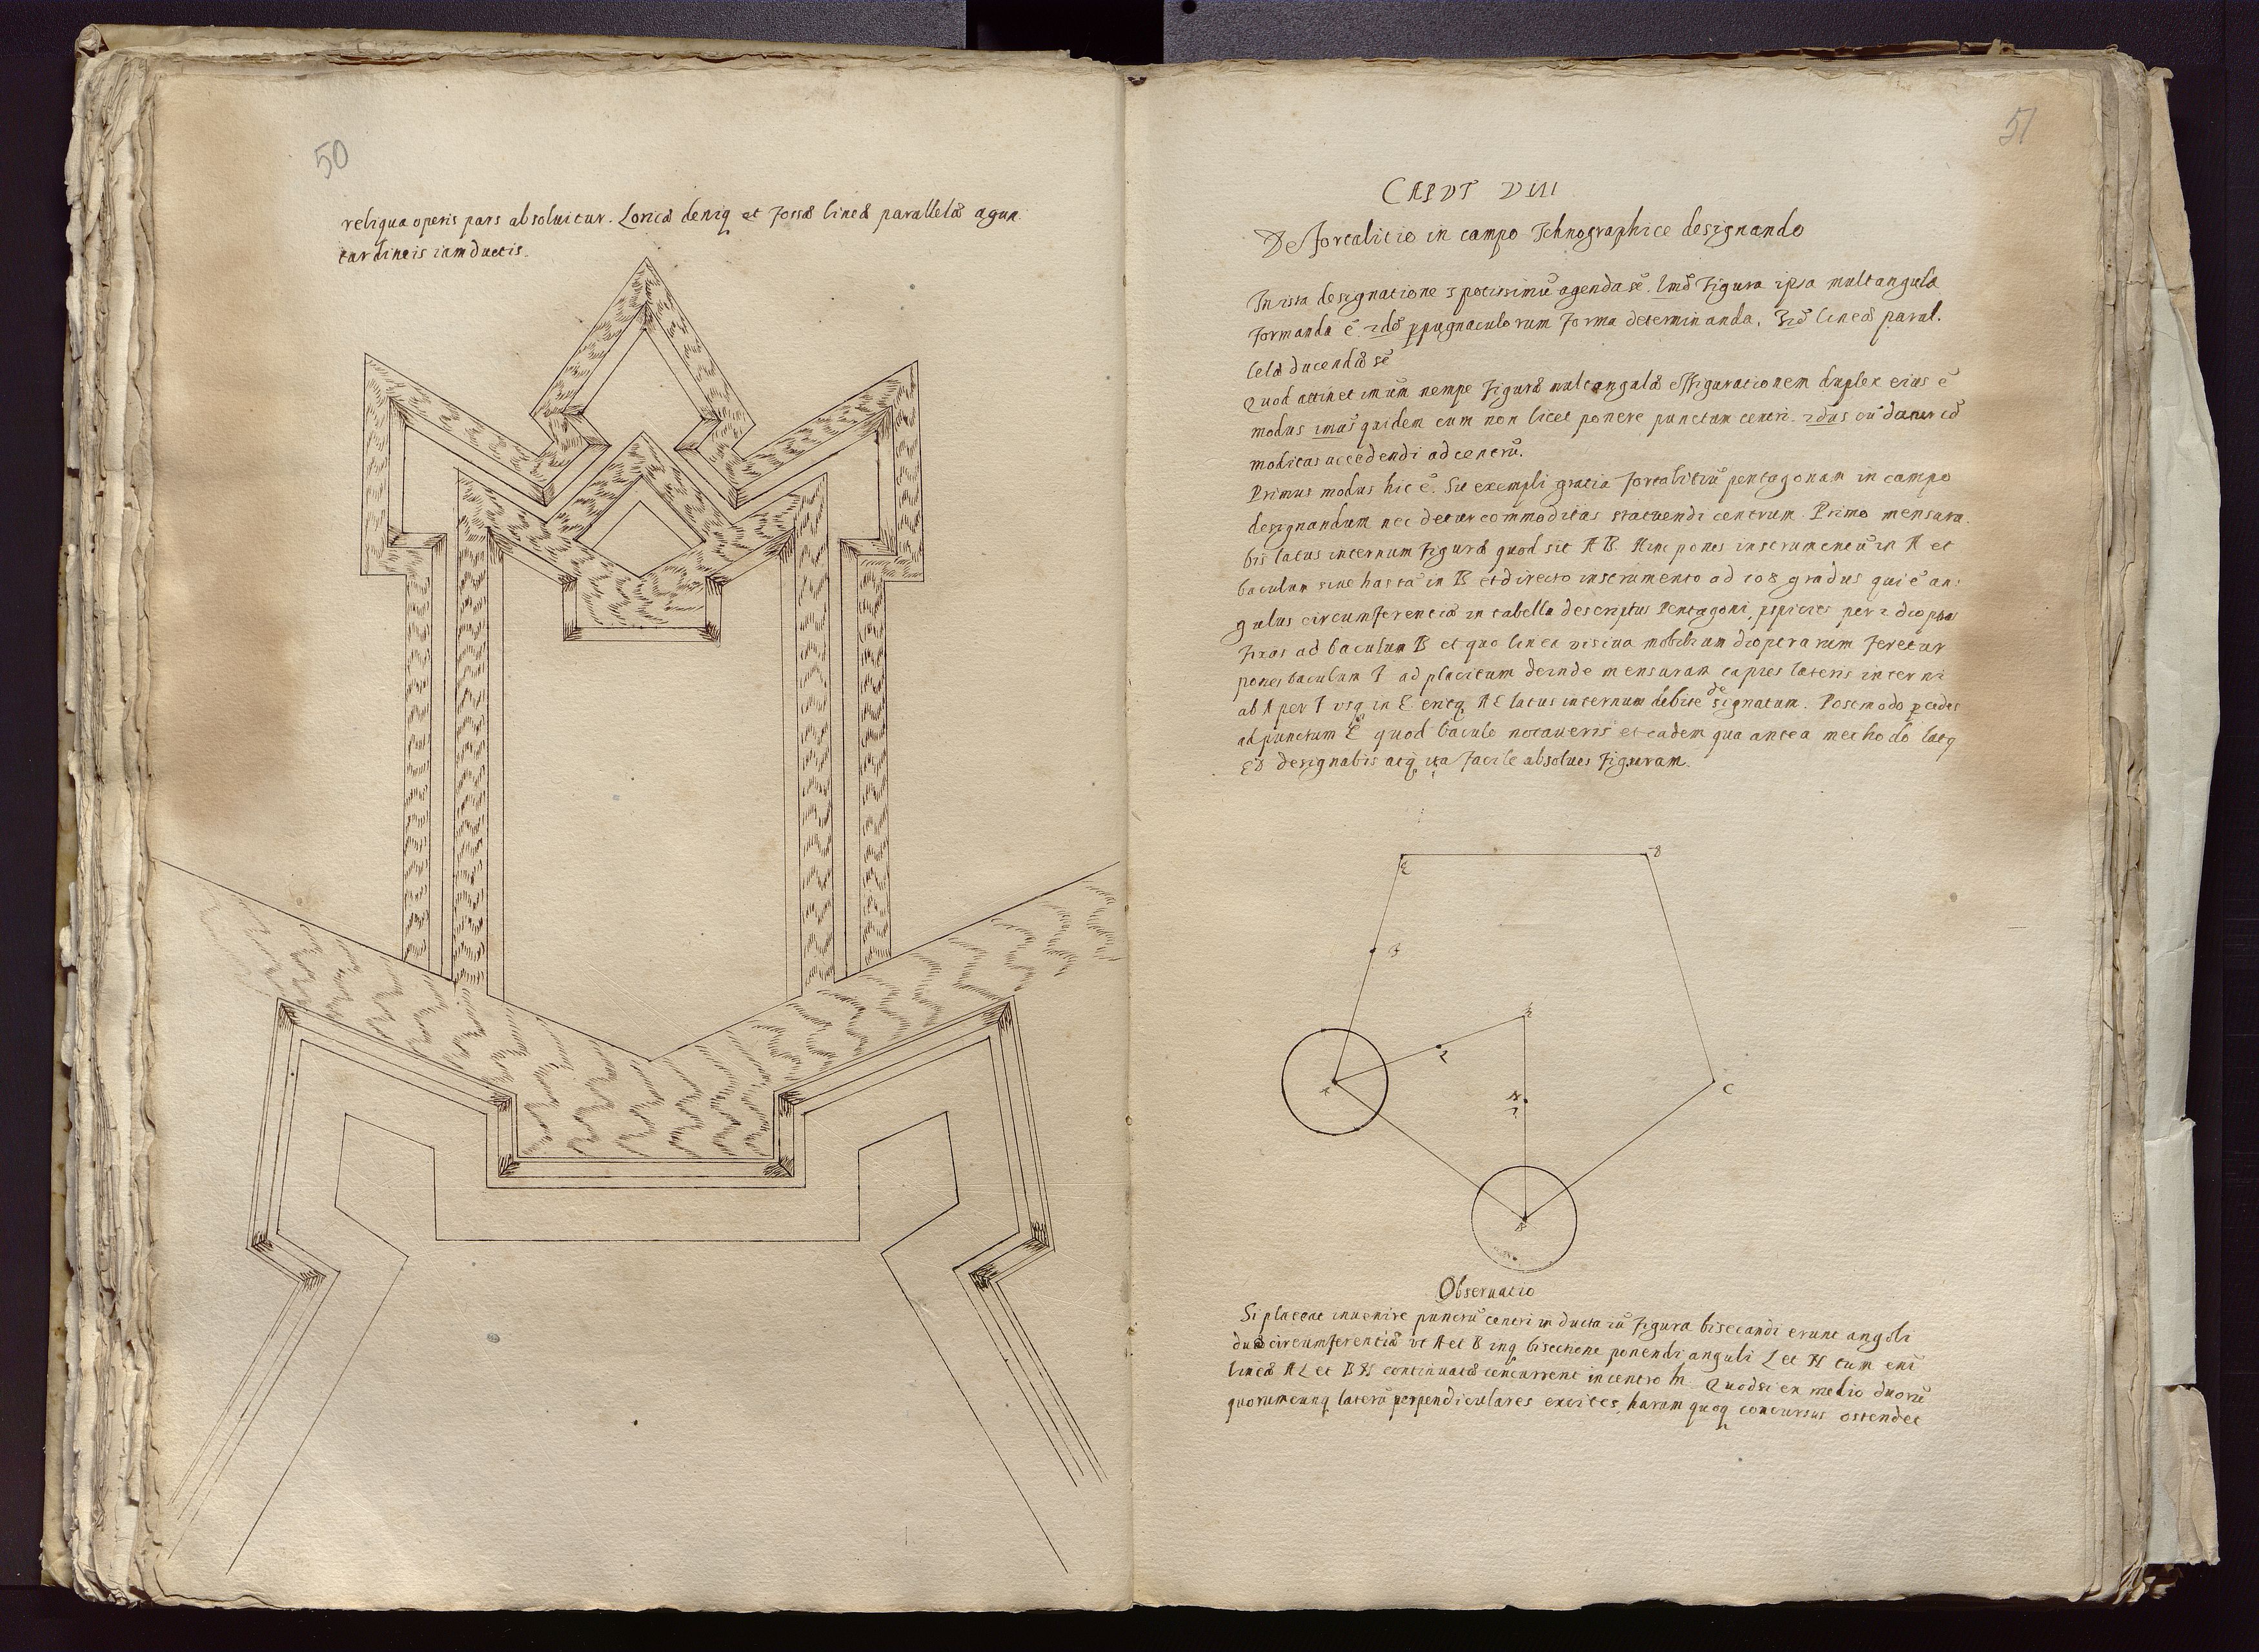 50
reliqua operis pars absoluitur. Loricæ deniq et Fossæ lineæ parallelæ agun
tur lineis iam ductis.
51
CAPVT VIII
De fortalitio in campo Ichnographice designando
In ista designatione 3 potissimũ agenda sẽ. Imõ Figura ipsa multangula
Formanda ẽ 2dõ ppugnaculorum Forma determinanda. 3iõ lineæ paral.
lelæ ducendæ sẽ
Quod attinet imũm nempe Figuræ multangulæ effigurationem duplex eius ẽ
modus imus quidem cum non licet ponere punctum centri. 2dus cũ datur cõ
moditas accedendi ad centrũ.
Primus modus hic ẽ. Sit exempli gratia fortalitiũ pentagonam in campo
designandum nec detur commoditas statuendi centrum. Primo mensura.
bis latus internum Figuræ quod sit A B. Hinc pones instrumentũ in A et
baculum siue hastã in B et directo instrumento ad 108 gradus qui ẽ an:
gulus circumferentiæ in tabella descriptus Pentagoni, pspicies per 2 dioptras
Fixas ad baculum B et quo linea visiua mobilium dioptrarum Feretur
pones baculum F ad placitum deinde mensuram capies lateris interni
ab A per F vsq in E eritq A E latus internum debite designatum. Postmodo pcedes
ad punctum E quod baculo notaueris et eadem qua antea methodo latq
ED designabis atq ita Facile absolues Figuram.
E
D
F
M
L
A
C
N
B
Obseruatio
Si placeat inuenire punctũ centri in ducta iã Figura bisecandi erunt anguli
duo circumferentiæ vt A et B inq bisectione ponendi anguli L et N tum eni
lineæ A L et B N continuatæ concurrent in centro M. Quodsi ex medio duorũ
quorumcunq laterũ perpendiculares excites, harum quoq concursus ostendet